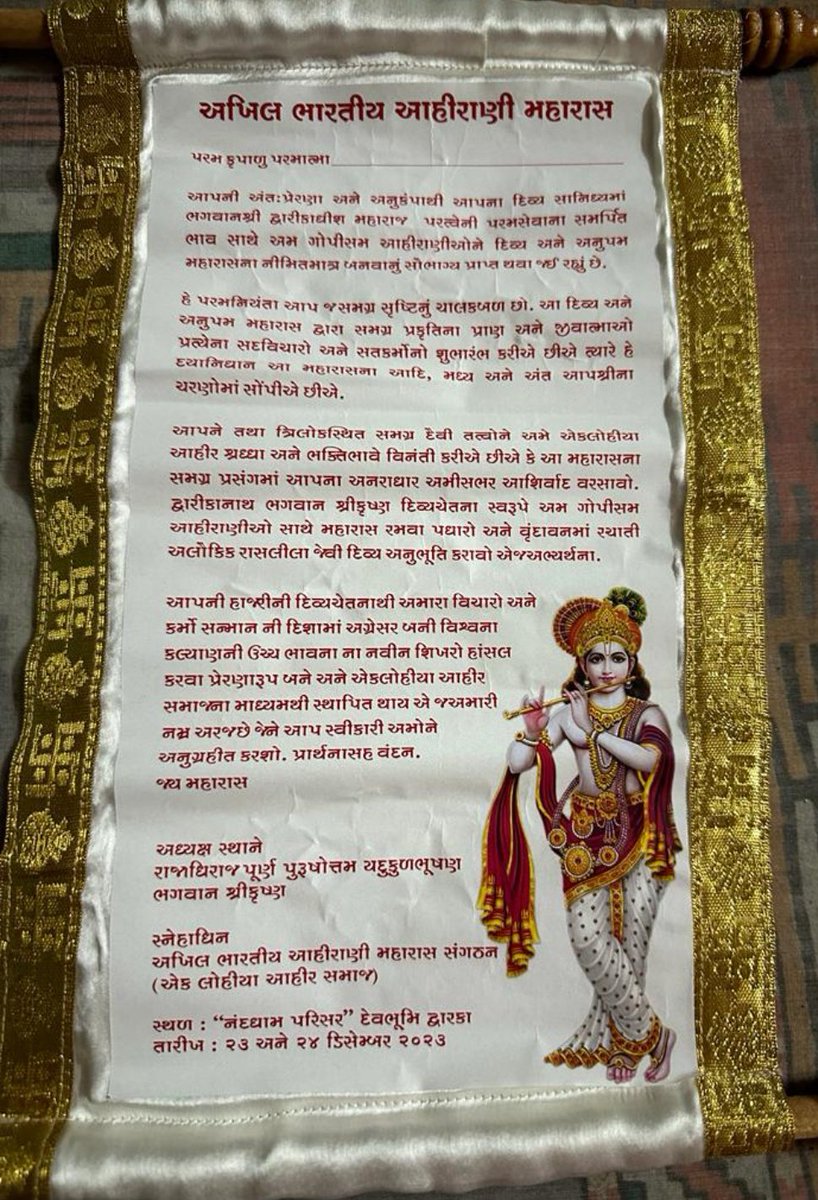 અખિલ ભારતીય આહીરાણી મહારાસ
પરમ કૃપાળુ પરમાત્મા
આપની અંત:પ્રેરણા અને અનુકંપાથી આપના દિવ્ય સાનિધ્યમાં
ભગવાનશ્રી દ્વારીકાધીશ મહારાજ પરત્વેની પરમસેવાના સમર્પિત
ભાવ સાથે અમ ગોપીસમ આહીરાણીઓને દિવ્ય અને અનુપમ
મહારાસના નીમિતમાત્ર બનવાનું સૌભાગ્ય પ્રાપ્ત થવા જઈ રહ્યું છે.
હે પરમનિયંતા આપ જસમગ્ર સૃષ્ટિનું ચાલકબળ છો. આ દિવ્ય અને
અનુપમ મહારાસ દ્વારા સમગ્ર પ્રકૃતિના પ્રાણ અને જીવાત્માઓ
પ્રત્યેના સદવિચારો અને સતકર્મોનો શુભારંભ કરીએ છીએ ત્યારે હે
દયાનિધાન આ મહારાસના આદિ, મધ્ય અને અંત આપશ્રીના
ચરણોમાં સોંપીએ છીએ.
આપને તથા ત્રિલોકસ્થિત સમગ્ર દેવી તત્વોને અમે એકલોહીયા
આહીર શ્રધ્ધા અને ભક્તિભાવે વિનંતી કરીએ છીએ કે આ મહારાસના
સમગ્ર પ્રસંગમાં આપના અનરાધાર અમીસભર આશિર્વાદ વરસાવો.
દ્વારીકાનાથ ભગવાન શ્રીકૃષ્ણ દિવ્યચેતના સ્વરૂપે અમ ગોપીસમ
આહીરાણીઓ સાથે મહારાસ રમવા પધારો અને વૃંદાવનમાં રચાતી
અલૌકિક રાસલીલા જેવી દિવ્ય અનુભૂતિ કરાવો એજઅભ્યર્થના.
આપની હાજરીની દિવ્યચેતનાથી અમારા વિચારો અને
કર્મો સન્માન ની દિશામાં અગ્રેસર બની વિશ્વના
કલ્યાણની ઉચ્ચ ભાવના ના નવીન શિખરો હાંસલ
કરવા પ્રેરણારૂપ બને અને એકલોહીયા આહીર
સમાજના માધ્યમથી સ્થાપિત થાય એ જઅમારી
નમ્ર અરજછે જેને આપ સ્વીકારી અમોને
અનુગ્રહીત કરશો. પ્રાર્થનાસહ વંદન.
જય મહારાસ
અધ્યક્ષ સ્થાને
રાજાધિરાજ પૂર્ણ પુરૂષોત્તમ યદુકુળભૂષણ
ભગવાન શ્રીકૃષ્ણ
સ્નેહાધિન
અખિલ ભારતીય આહીરાણી મહારાસ સંગઠન
(એક લોહીયા આહીર સમાજ)
સ્થળ : “નંદધામ પરિસર” દેવભૂમિ દ્વારકા
તારીખ : ૨૩ અને ૨૪ ડિસેમ્બર ૨૦૨૩